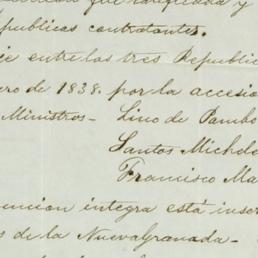 republicas contratantes.
entre las tres Republic
ro de 1838. por la accesio
Ministros - Lino de Pombo
Santos Michele
Francisco Ma
encion integra está inser
s de la Nueva Granada -